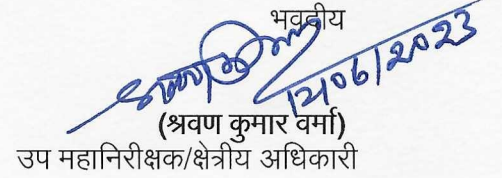 भवदीय
12/06/2023
(श्रवण कुमार वर्मा)
उप महानिरीक्षक/क्षेत्रीय अधिकारी